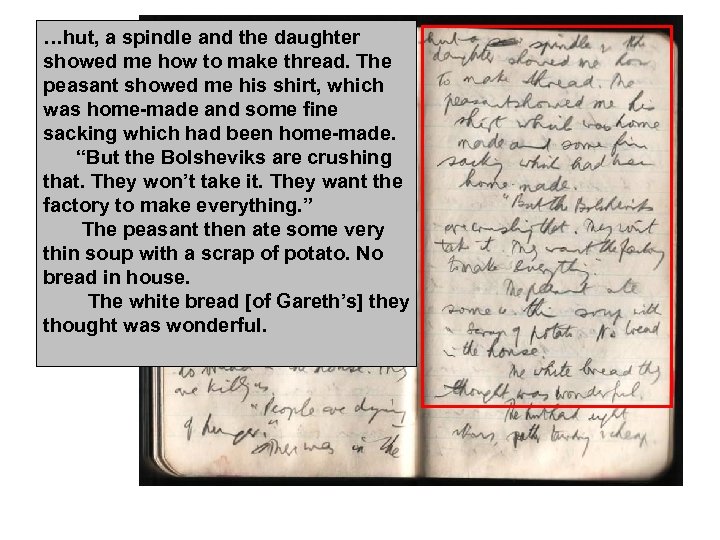 …hut, a spindle and the daughter
showed me how to make thread. The
peasant showed me his shirt, which
was home-made and some fine
sacking which had been home-made.
“But the Bolsheviks are crushing
that. They won’t take it. They want the
factory to make everything. ”
The peasant then ate some very
thin soup with a scrap of potato. No
bread in house.
The white bread [of Gareth’s] they
thought was wonderful.
the house. They
are killing us.
"People are dying
of hunger."
There was in the
hut a spindle & the
daughter showed me how
to make thread. The
peasant showed me his
shirt which was home
made and some fine
sacking which had been
home-made.
"But the Bolsheviks
are crushing that. They won't
take it. They want the factory
to make everything"
The peasant ate
some thin soup with
a scrap of potato. No bread
in the house.
The white bread they
thought was wonderful.
The hut had eight